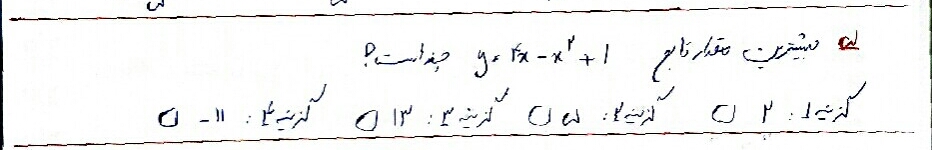 ۵ بیشترین مقدار تابع y = ۴x − x² + 1 چند است؟
گزینه ۱: ۲ گزینه ۲: ۵ گزینه ۳: ۱۳ گزینه ۴: ۱۱-